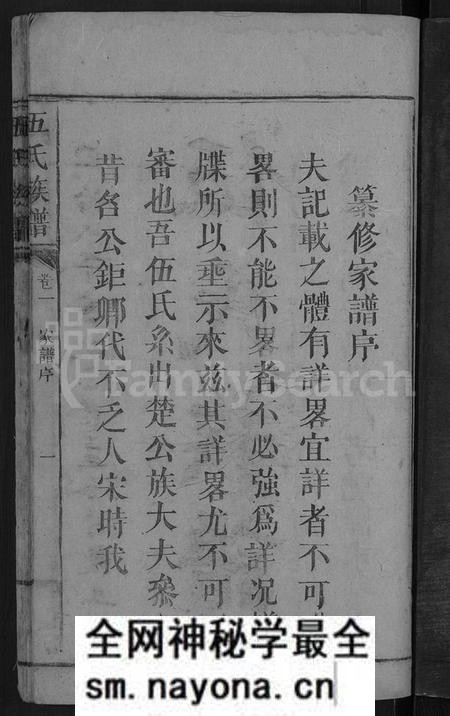 纂修家譜序
夫記載之體有詳畧宜詳者不可
畧則不能不畧者不必強爲詳况
牒所以埀示來兹其詳畧尤不可
審也吾伍氏系出楚公族大夫叅
昔名公鉅卿代不乏人宋時我
伍氏族譜
卷一
家譜序
一
FamilySearch
全网神秘学最全
sm.nayona.cn